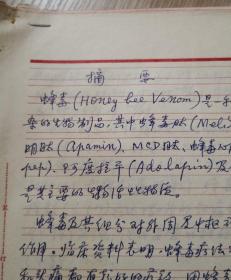 摘 要
蜂毒(Honey bee Venom)是一
杂的生物制品,其中蜂毒肽(Meli
明肽(Apamin)、MCD肽、蜂毒心
pep)、阿度拉平(Adolapin)及
是其主要的生物活性物质。
蜂毒及其组分对外周及中枢
作用。临床资料表明,蜂毒疗法
和